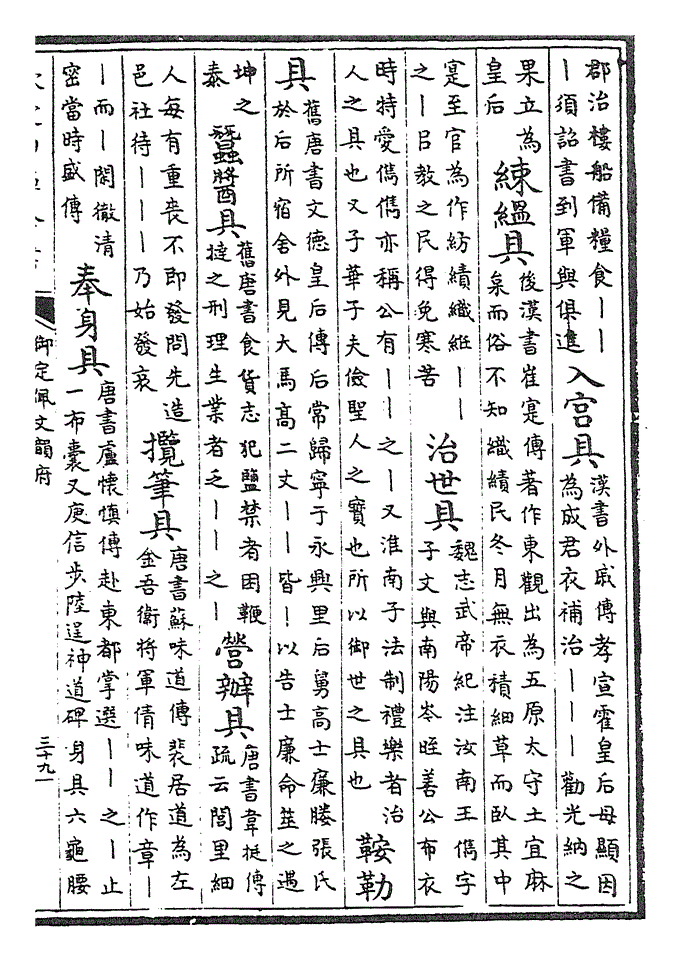 郡治樓船備糧食丨丨
丨須詔書到軍與俱進
入宮具
漢書外戚傳孝宣霍皇后母顯因
為成君衣補治丨丨丨勸光納之
果立為
皇后
練縕具
後漢書崔寔傳著作東觀出為五原太守土宜麻
枲而俗不知織績民冬月無衣積細草而臥其中
寔至官為作紡績織絍丨丨
之丨㠯教之民得免寒苦
治世具
魏志武帝紀注汝南王儁字
子文與南陽岑晊善公布衣
時特愛儁儁亦稱公有丨丨之丨又淮南子法制禮樂者治
人之具也又子華子夫儉聖人之寶也所以御世之具也
鞍勒
具
舊唐書文德皇后傳后常歸寧于永興里后舅高士廉媵張氏
於后所宿舍外見大馬高二丈丨丨皆丨以告士廉命筮之遇
坤之
泰
蠶醬具
舊唐書食貨志犯鹽禁者困鞭
撻之刑理生業者乏丨丨之丨
營辦具
唐書韋挺傳
疏云閭里細
人每有重喪不即發問先造
邑社待丨丨丨乃始發哀
攬筆具
唐書蘇味道傳裴居道為左
金吾衛將軍倩味道作章丨
丨而丨閑徹清
密當時盛傳
奉身具
唐書盧懷慎傳赴東都掌選丨丨之丨止
一布囊又庾信步陸逞神道碑身具六龜腰
御定佩文韻府
三十九一